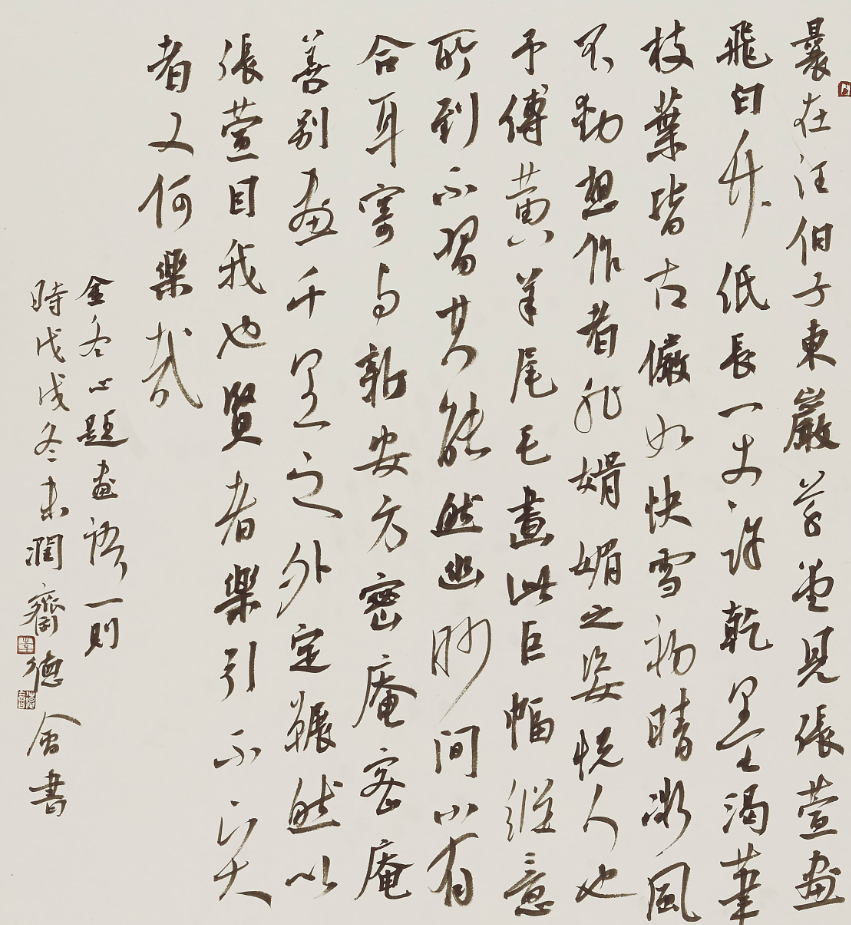 曩在汪伯子東巖草堂見張萱畫
飛白竹紙長一丈許乾墨渴筆
枝葉皆古儼如快雪初晴微風
不動想作者非娟媚之姿悦人也
予縛黄羊尾毛畫此巨幅縱意
所到不習其能然幽眇間小有
合耳寄与新安方密庵密庵
善别畫千里之外定囅然以
張萱目我也賢者樂引不賢
者又何樂哉
金冬心題畫語一則
時戊戌冬末潤齋德会書